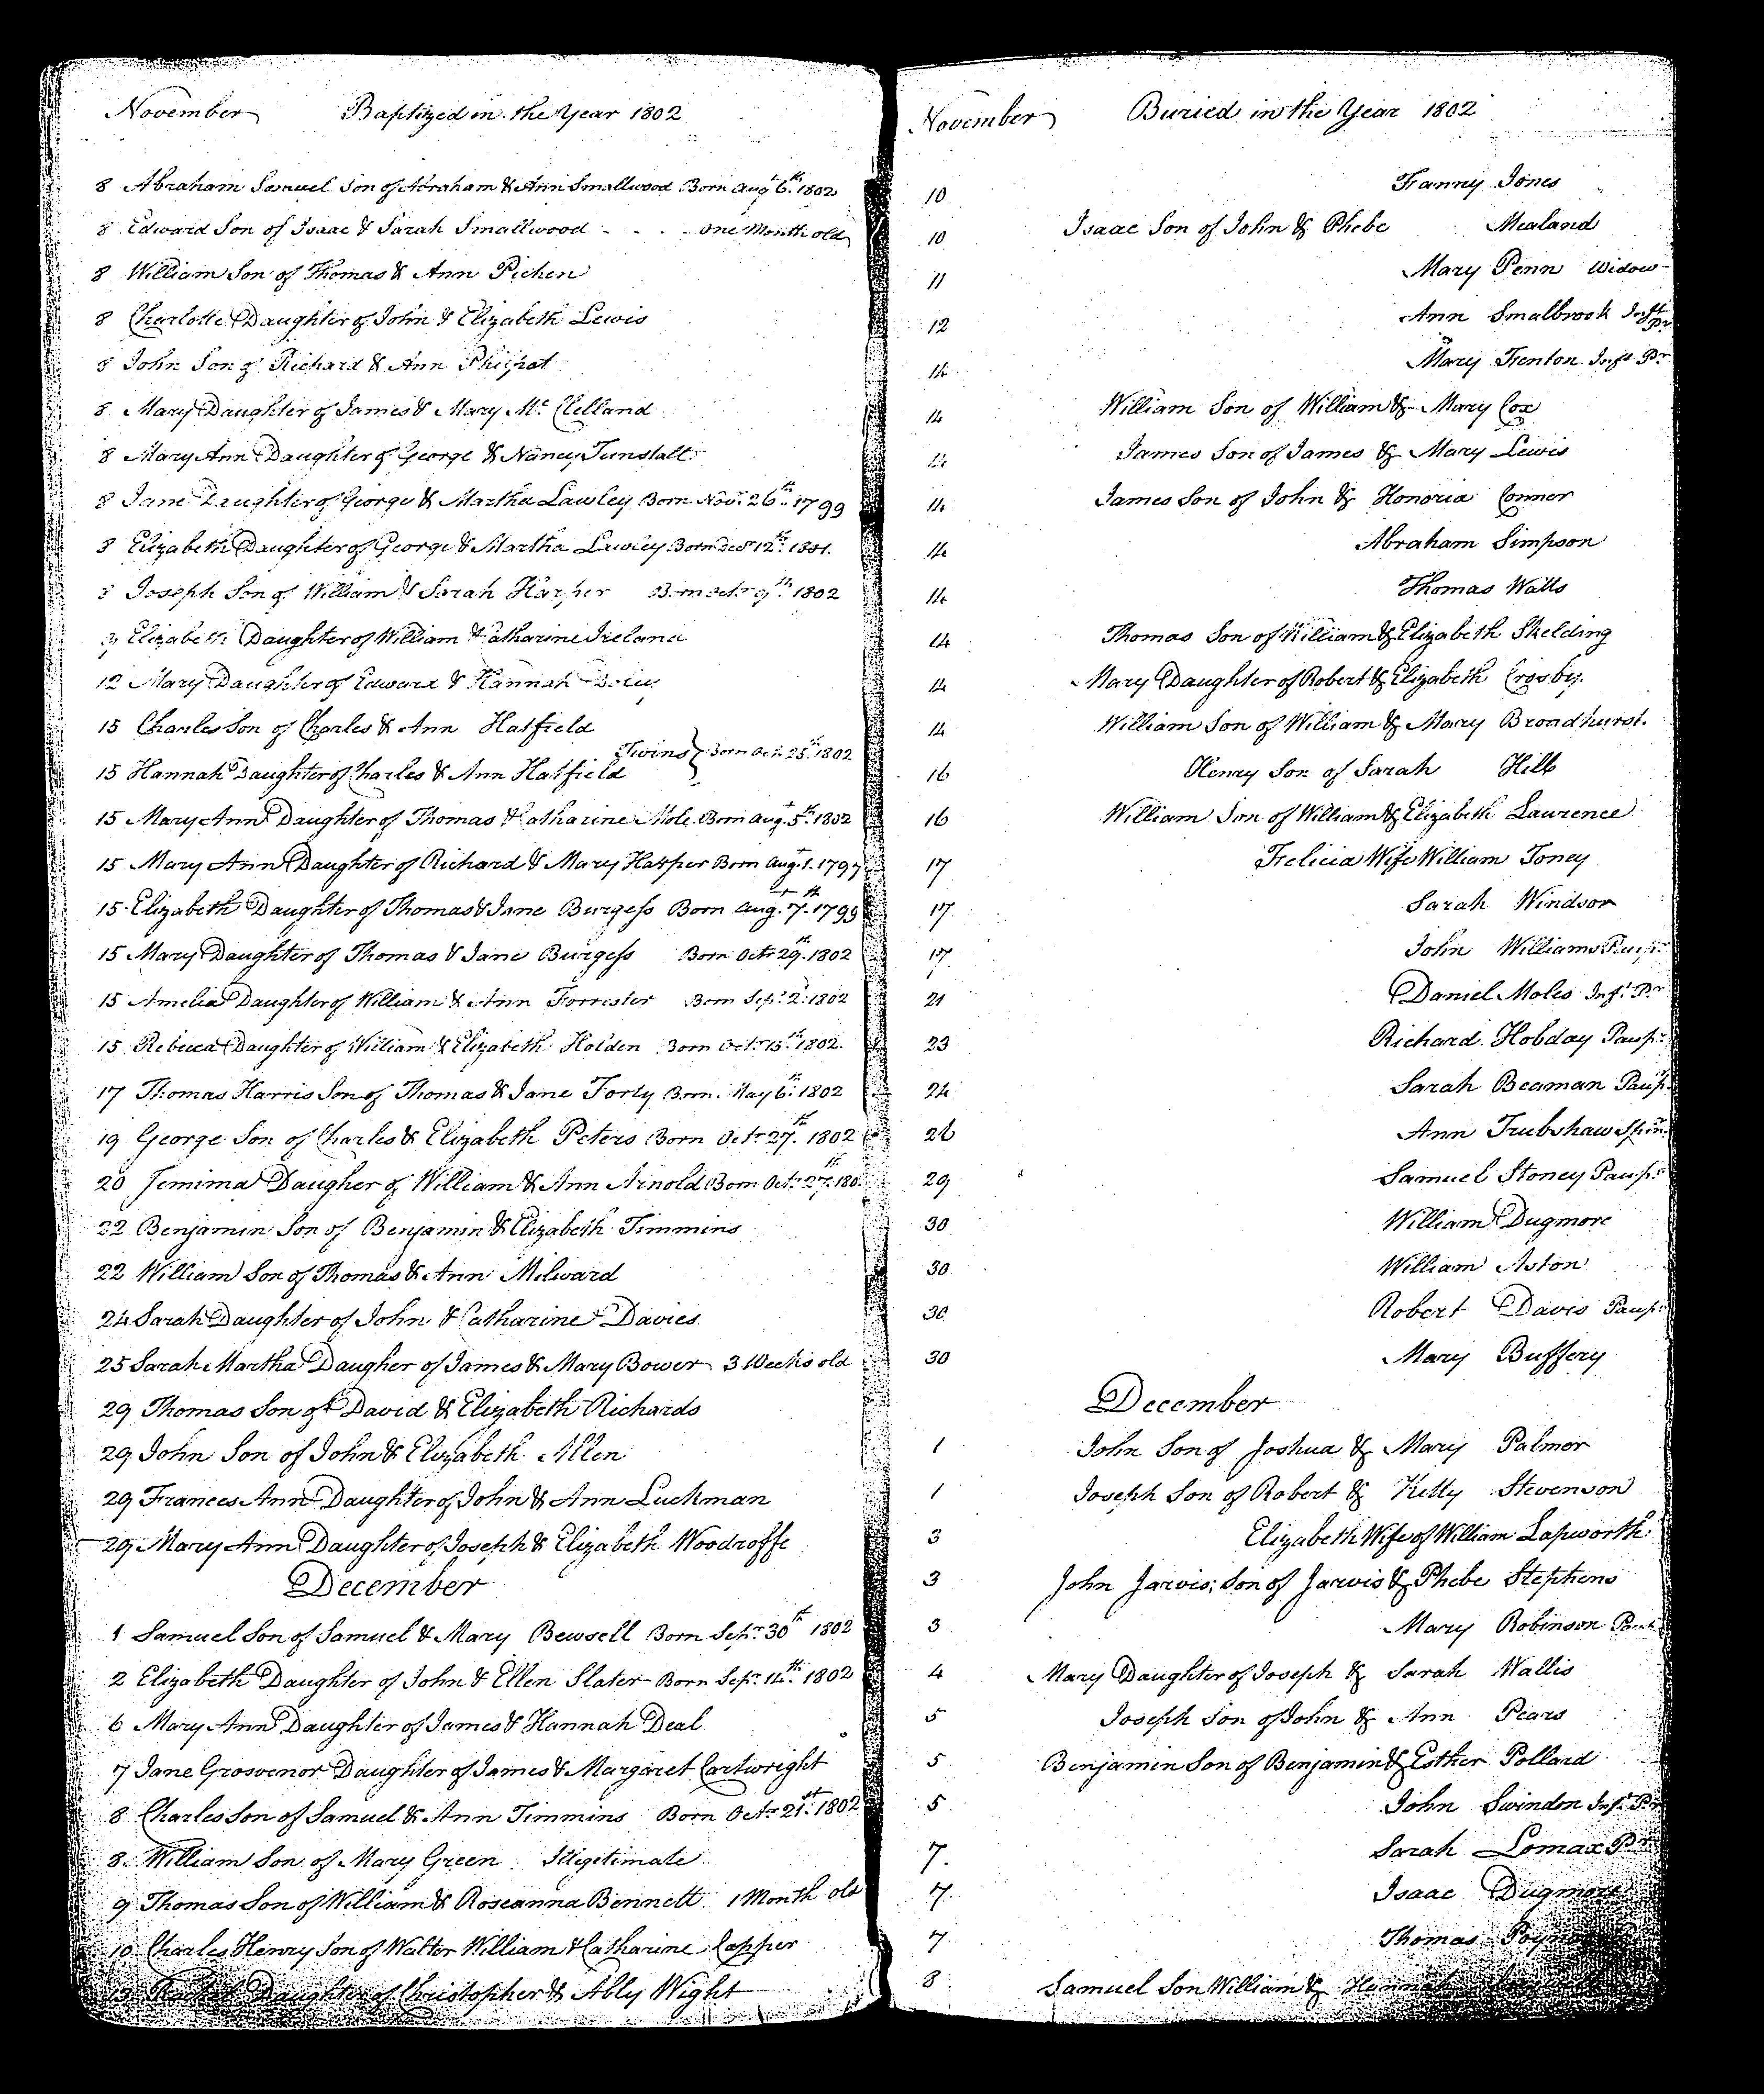 November Baptized in the Year 1802
8 Abraham Samuel Son of Abraham & Ann Smallwood Born Augt 6th. 1802
8 Edward Son of Isaac & Sarah Smallwood - - - - one Month old
8 William Son of Thomas & Ann Pichen
8 Charlotte Daughter of John & Elizabeth Lewis
8 John Son of Richard & Ann
8 Mary Daughter of James & Mary Mc Clelland
8 Mary Ann Daughter of George & Nancy Tunstall
8 Jane Daughter of George & Martha Lawley Born Novr. 26th. 1799
8 Elizabeth Daughter of George & Martha Lawley Born Decr 12th. 1801.
8 Joseph Son of William & Sarah Harper Born Octr 9th. 1802
Elizabeth Daughter of William & Catharine Ireland
12 Mary Daughter of Edward & Hannah
15 Charles Son of Charles & Ann Hatfield
Twins } Born Octr 25th. 1802
15 Hannah Daughter of Charles & Ann Hatfield
15 Mary Ann Daughter of Thomas & Catharine Mole Born Augt. 5th. 1802
15 Mary Ann Daughter of Richard & Mary Harper Born Augt. 1. 1797
15 Elizabeth Daughter of Thomas & Jane Burgess Born Augt. 7th. 1799
15 Mary Daughter of Thomas & Jane Burgess Born Octr 29th. 1802
15 Amelia Daughter of William & Ann Forrester Born Sepr. 2. 1802
15 Rebecca Daughter of William & Elizabeth Holden Born Octr. 15th. 1802.
17 Thomas Harris Son of Thomas & Jane Forty Born. May 6th. 1802
19 George Son of Charles & Elizabeth Peters Born Octr 27th. 1802
20 Jemima Daugher of William & Ann Arnold Born Octr. 27th. 180
22 Benjamin Son of Benjamin & Elizabeth Timmins
22 William Son of Thomas & Ann Milward
24 Sarah Daughter of John & Catharine Davies
25 Sarah Martha Daugher of James & Mary Bower 3 Weeks old
29 Thomas Son of David & Elizabeth Richards
29 John Son of John & Elizabeth Allen
29 Frances Ann Daughter of John & Ann Luckman
29 Mary Ann Daughter of Joseph & Elizabeth Woodroffe
December
1 Samuel Son of Samuel & Mary Bewsell Born Sepr. 30th 1802
2 Elizabeth Daughter of John & Ellen Slater Born Sepr. 14th. 1802
6 Mary Ann Daughter of James & Hannah Deal
7 Jane Grosvenor Daughter of James & Margaret Cartwright
8 Charles Son of Samuel & Ann Timmins Born Octr 21st. 1802
8. William Son of Mary Green Illigitimate
9 Thomas Son of William & Roseanna Bennett 1 Month old
10 Charles Henry Son of Walter William & Catharine Capper
Daughter of Christopher & Ably Wight
November Buried in the Year 1802
10 Franny Jones
10 Isaac Son of John & Phebe Mealand
11 Mary Penn Widow
12 Ann Smalbrook Inft Pr
14 Mary Trenton Inft Pr
14 William Son of William & Mary Cox
14 James Son of James & Mary Lewis
14 James Son of John & Honoria Conner
14 Abraham Simpson
14 Thomas Watts
14 Thomas Son of William & Elizabeth Skelding
14 Mary Daughter of Robert & Elizabeth Crosby.
14 William Son of William & Mary Broadhurst.
16 Henry Son of Sarah Hill
16 William Son of William & Elizabeth Laurence
17 Frelicia Wife William Toney
17 Sarah Windsor
17 John Williams Paupr
21 Daniel Moles Inft. Pr
23 Richard Hobday Paupr
24 Sarah Beaman Paupr
26 Ann Trubshaw Spinr
29 Samuel Stoney Paupr
30 William Dugmore
30 William Aston
30 Robert Davis Paupr
30 Mary Buffery
December
1 John Son of Joshua & Mary Palmer
1 Joseph Son of Robert & Kitty Stevenson
3 Elizabeth Wife of William Lapworth
3 John Jarvis; Son of Jarvis & Phebe Stephens
3 Mary Robinson Paupr
4 Mary Daughter of Joseph & Sarah Wallis
5 Joseph Son of John & Ann Pears
5 Benjamin Son of Benjamin & Esther Pollard
5 John Swindon Inft. Pr
7. Sarah Lomax Pr
7 Isaac Dugmore
7 Thomas
8 Samuel Son William &